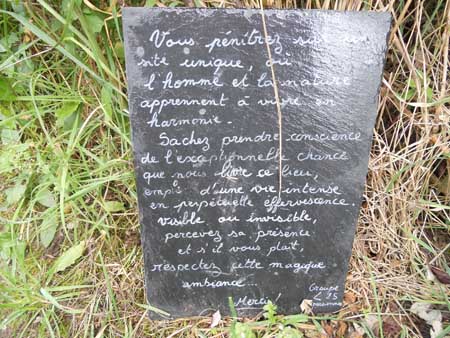 Vous pénétrez sur un
site unique, où
l'homme et la nature
apprennent à vivre en
harmonie.
Sachez prendre conscience
de l'exceptionnelle chance
que nous livre ce lieu,
empli d'une vie intense
en perpétuelle effervescence
visible ou invisible,
percevez sa présence
et s'il vous plait,
respectez cette magique
ambiance...
Merci!
Groupe